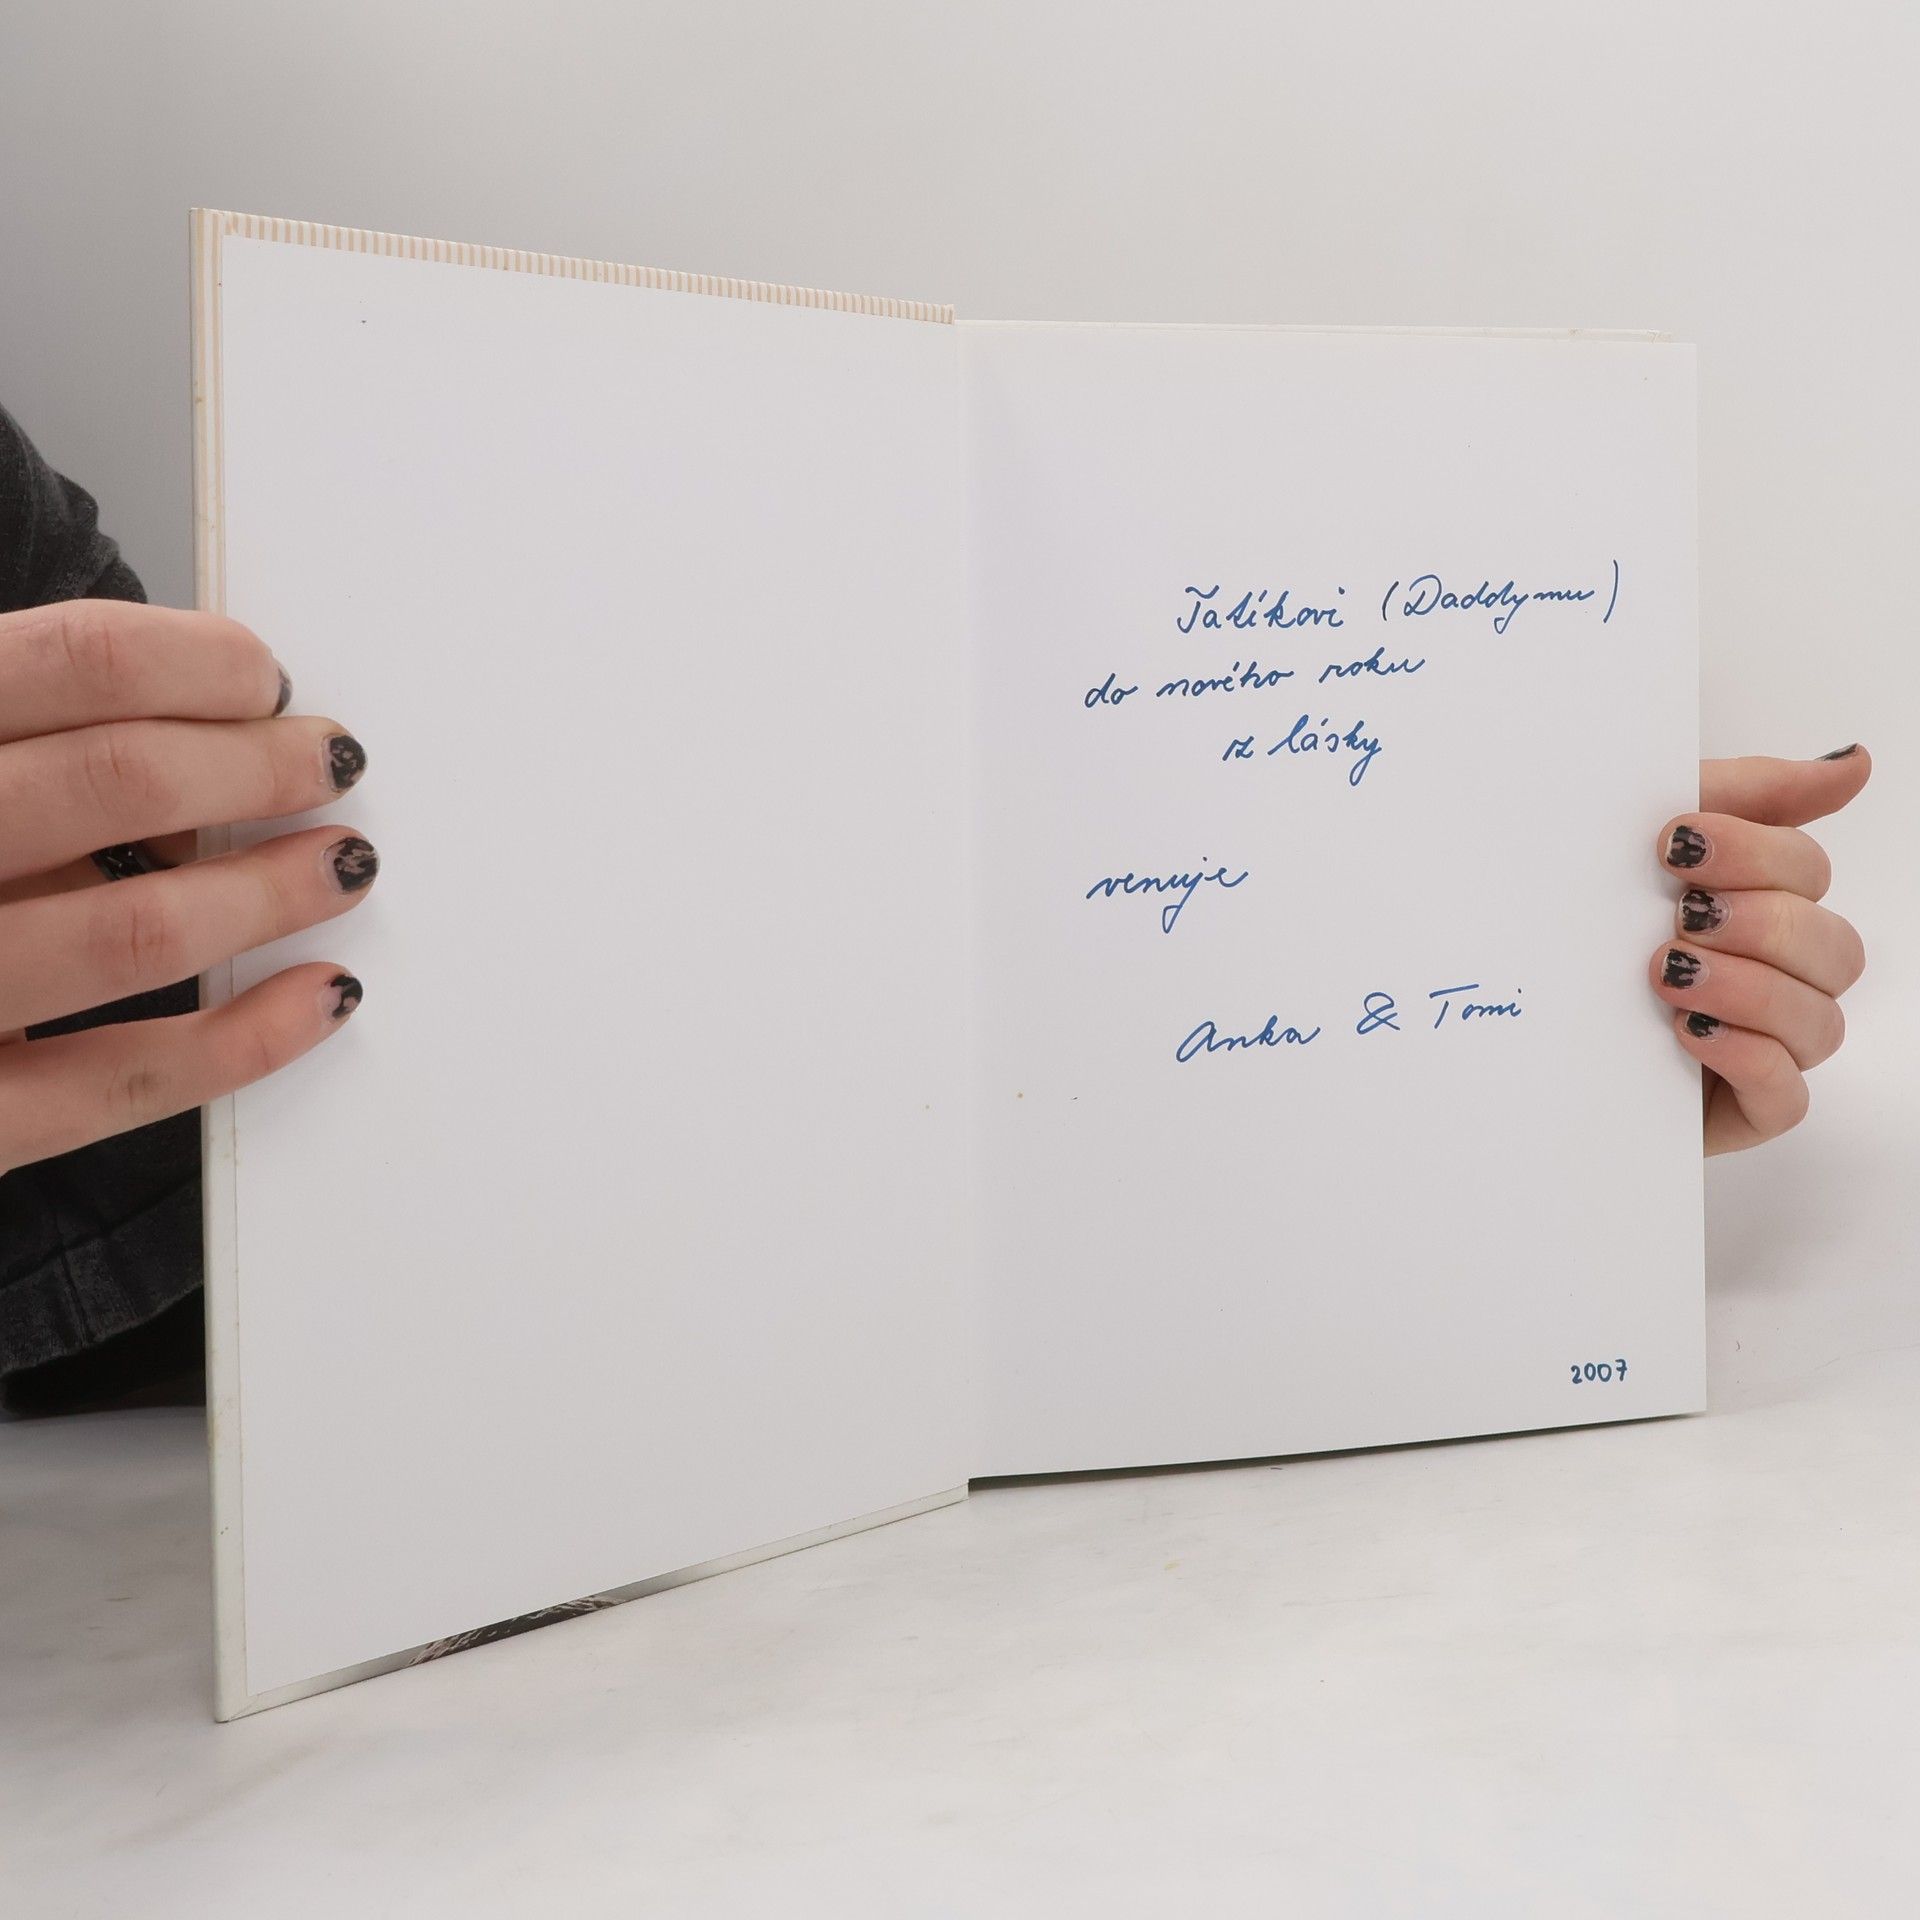 Tatíkovi (Daddymu)
do nového roku
z lásky
venuje
Anka & Tomi
2007